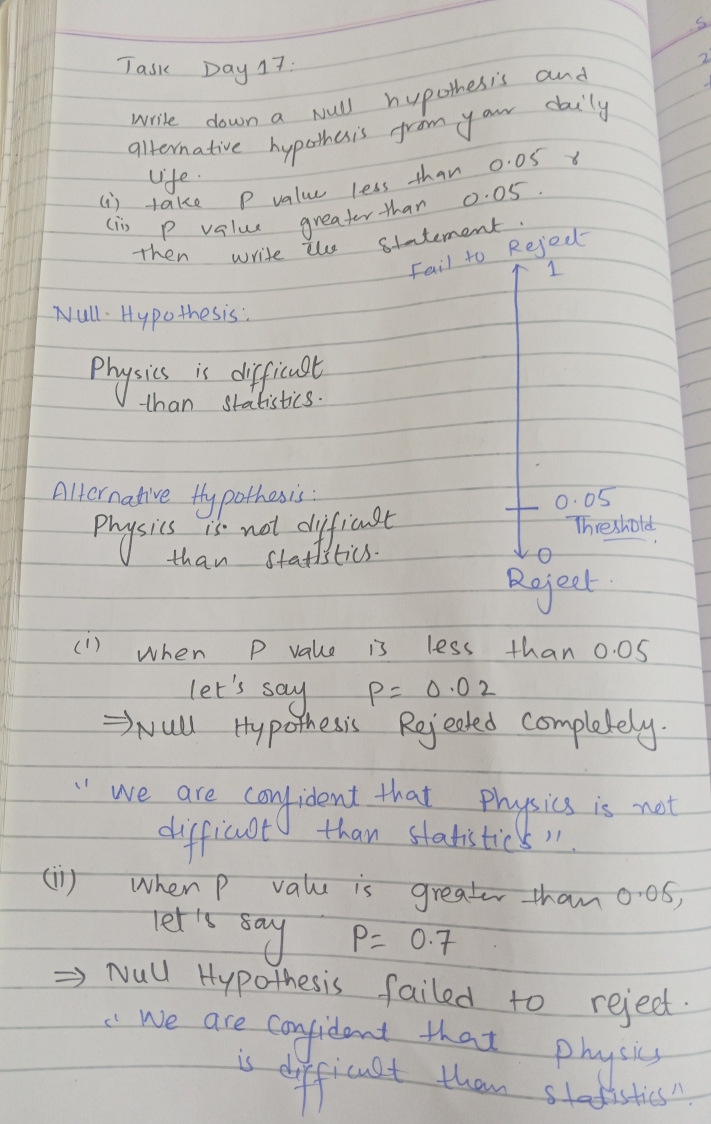 Task Day 17:
Write down a Null hypothesis and
alternative hypothesis from your daily
life.
(i) take P value less than 0.05 &
(ii) P value greater than 0.05.
then write the statement.
Fail to Reject
1
Null Hypothesis:
Physics is difficult
than statistics.
Alternative Hypothesis:
Physics is not difficult
than statistics.
0.05
Threshold
0
Reject.
(i) When P value is less than 0.05
let's say P= 0.02
⇒ Null Hypothesis Rejected completely.
"We are confident that Physics is not
difficult than statistics".
(ii) When P value is greater than 0.05,
let's say P= 0.7
⇒ Null Hypothesis failed to reject.
"We are confident that Physics
is difficult than statistics".